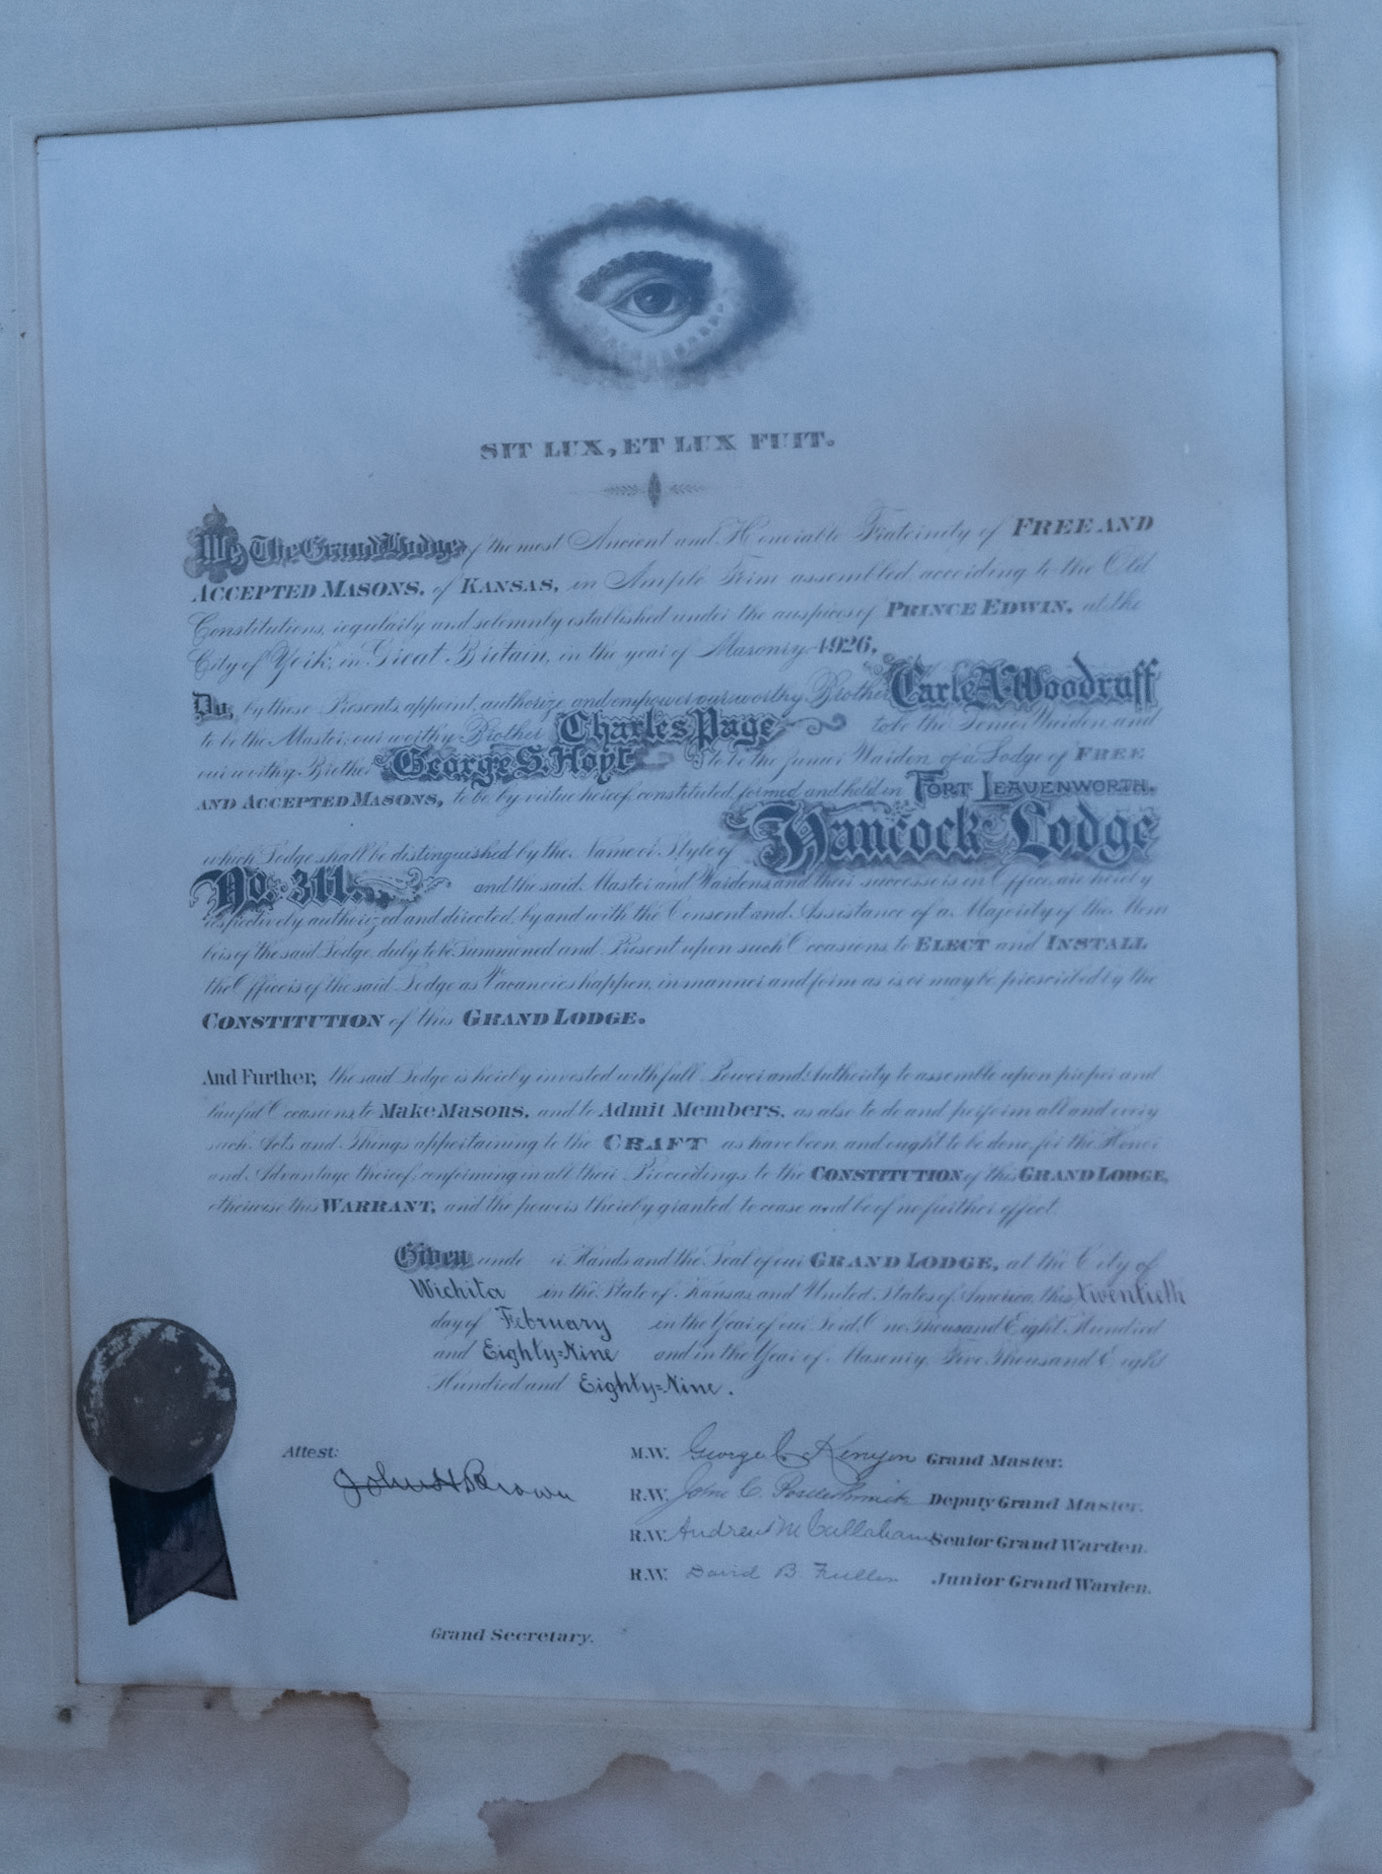 SIT LUX, ET LUX FUIT.
We, The Grand Lodge of the most Ancient and Honorable Fraternity of FREE AND
ACCEPTED MASONS, of KANSAS, in Ample Form assembled, according to the Old
Constitutions, regularly and solemnly established under the auspices of PRINCE EDWIN, at the
City of York, in Great Britain, in the year of Masonry 4926,
Do, by these Presents, appoint, authorize and empower our worthy Brother Carle A. Woodruff
to be the Master; our worthy Brother Charles Page to be the Senior Warden and
our worthy Brother George S. Hoyt to be the Junior Warden of a Lodge of FREE
AND ACCEPTED MASONS, to be, by virtue hereof, constituted, formed and held in FORT LEAVENWORTH,
which Lodge shall be distinguished by the Name or Style of Hancock Lodge
No. 311. and the said Master and Wardens, and their successors in Office, are hereby
respectively authorized and directed, by and with the Consent and Assistance of a Majority of the Mem
bers of the said Lodge, duly to be Summoned and Present upon such Occasions, to ELECT and INSTALL
the Officers of the said Lodge as Vacancies happen, in manner and form as is or may be prescribed by the
CONSTITUTION of this GRAND LODGE.
And Further, the said Lodge is hereby invested with full Power and Authority to assemble upon proper and
lawful Occasions, to Make Masons, and to Admit Members, as also to do and perform all and every
such Acts and Things appertaining to the CRAFT as have been and ought to be done, for the Honor
and Advantage thereof; conforming in all their Proceedings to the CONSTITUTION of this GRAND LODGE,
otherwise this WARRANT, and the powers thereby granted, to cease and be of no further effect.
Given unde r Hands and the Seal of our GRAND LODGE, at the City of
Wichita in the State of Kansas and United States of America, this twentieth
day of February in the Year of our Lord, One Thousand Eight Hundred
and Eighty-Nine and in the Year of Masonry, Five Thousand Eight
Hundred and Eighty-Nine.
Attest: M.W. George C. Kenyon Grand Master.
John H Brown R.W. John C. Postlethwaite Deputy Grand Master.
R.W. Andrew M Callaham Senior Grand Warden.
R.W. David B. Fuller Junior Grand Warden.
Grand Secretary.